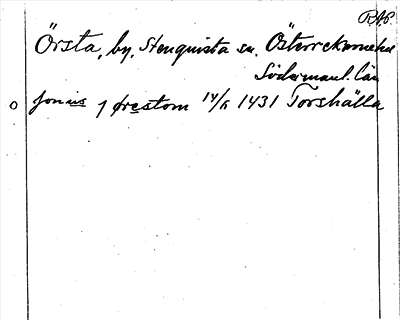 RAP
Örsta, by, Stenquista sn. Österrekarnehd
Södermanl. län
o jonus j ørestom 14/5 1431 Torshälla